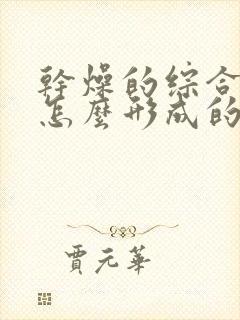 幹燥的綜合
怎麼形成的
賈元華